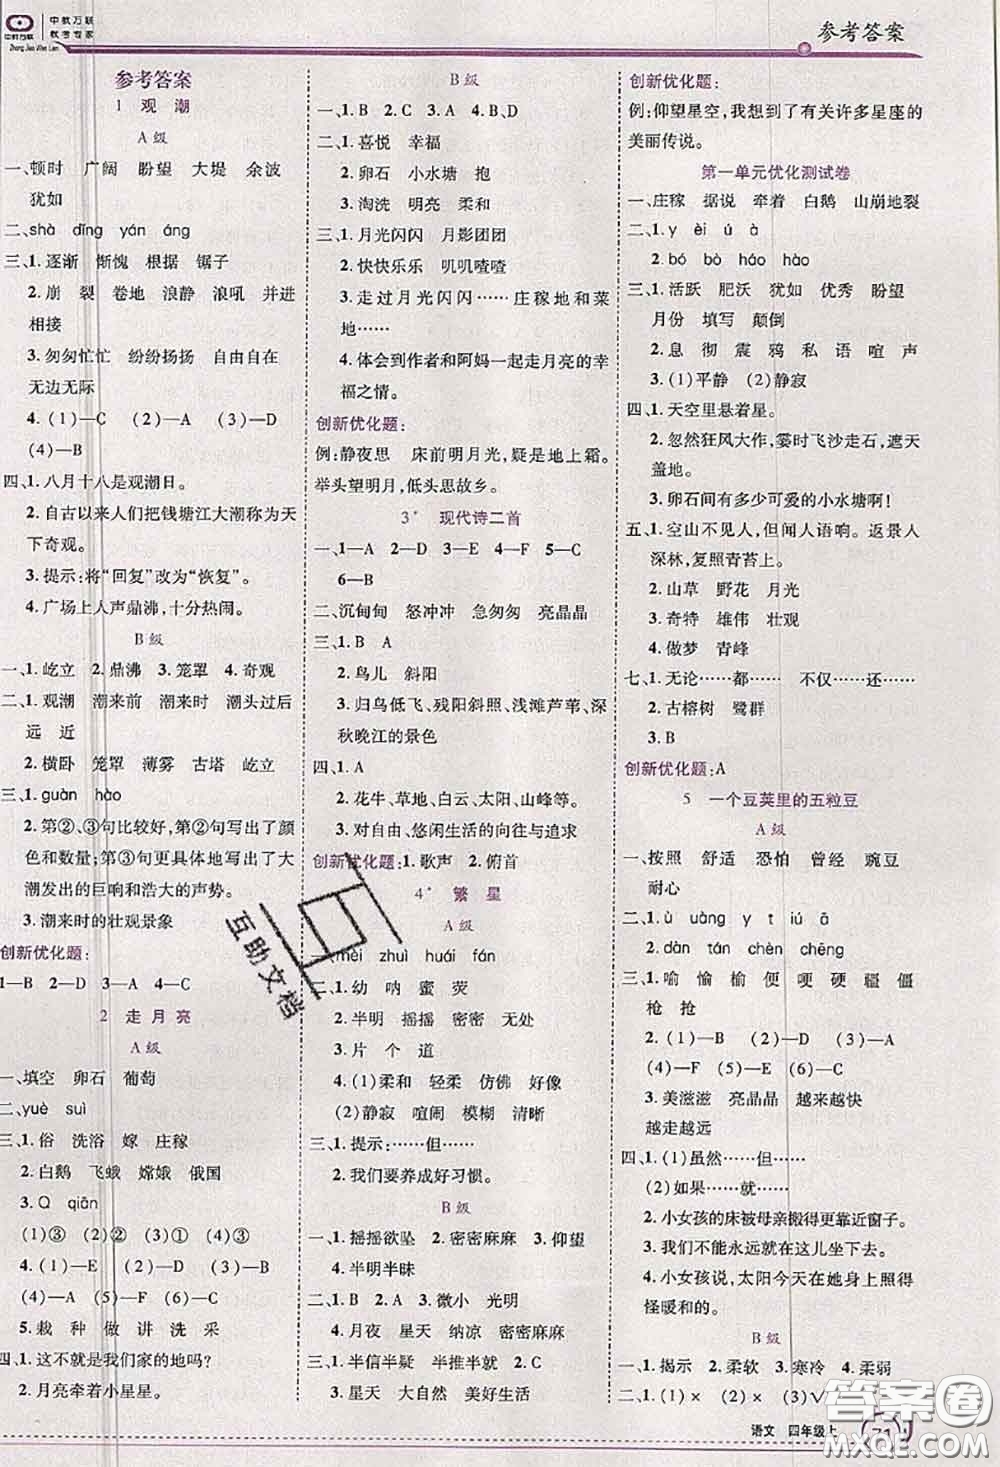 中教万联
教考专家
中教万联
Zhong Jiao Wan Lian
参考答案
参考答案
1 观 潮
A 级
一、顿时 广阔 盼望 大堤 余波
犹如
二、shà dǐng yán áng
三、1.逐渐 惭愧 根据 锯子
2.崩 裂 卷地 浪静 浪吼 并进
相接
3.匆匆忙忙 纷纷扬扬 自由自在
无边无际
4.(1)—C (2)—A (3)—D
(4)—B
四、1.八月十八是观潮日。
2.自古以来人们把钱塘江大潮称为天
下奇观。
3.提示:将“回复”改为“恢复”。
4.广场上人声鼎沸,十分热闹。
B 级
一、1.屹立 2.鼎沸 3.笼罩 4.奇观
二、1.观潮 潮来前 潮来时 潮头过后
远 近
2.横卧 笼罩 薄雾 古塔 屹立
三、1.guàn hào
2.第②、③句比较好,第②句写出了颜
色和数量;第③句更具体地写出了大
潮发出的巨响和浩大的声势。
3.潮来时的壮观景象
创新优化题:
1—B 2—D 3—A 4—C
2 走 月 亮
A 级
一、填空 卵石 葡萄
二、yuè suì
三、1.俗 洗浴 嫁 庄稼
2.白鹅 飞蛾 嫦娥 俄国
3.Q qiān
(1)③ (2)② (3)① (4)③
4.(1)—C (2)—D (3)—B
(4)—A (5)—F (6)—E
5.栽 种 做 讲 洗 采
四、1.这不就是我们家的地吗?
2.月亮牵着小星星。
B 级
一、1.B 2.C 3.A 4.B、D
二、1.喜悦 幸福
2.卵石 小水塘 抱
3.淘洗 明亮 柔和
三、1.月光闪闪 月影团团
2.快快乐乐 叽叽喳喳
3.走过月光闪闪……庄稼地和菜
地……
4.体会到作者和阿妈一起走月亮的幸
福之情。
创新优化题:
例:静夜思 床前明月光,疑是地上霜。
举头望明月,低头思故乡。
3* 现代诗二首
一、1—A 2—D 3—E 4—F 5—C
6—B
二、沉甸甸 怒冲冲 急匆匆 亮晶晶
三、1.B A
2.鸟儿 斜阳
3.归鸟低飞、残阳斜照、浅滩芦苇、深
秋晚江的景色
四、1.A
2.花牛、草地、白云、太阳、山峰等。
3.对自由、悠闲生活的向往与追求
创新优化题:1.歌声 2.俯首
4* 繁 星
A 级
一、mèi zhuì huái fán
二、1.幼 呐 蜜 荧
2.半明 摇摇 密密 无处
3.片 个 道
4.(1)柔和 轻柔 仿佛 好像
(2)静寂 喧闹 模糊 清晰
三、1.提示:……但……
2.我们要养成好习惯。
B 级
一、1.摇摇欲坠 2.密密麻麻 3.仰望
4.半明半昧
二、1.B 2.A 3.微小 光明
4.月夜 星天 纳凉 密密麻麻
三、1.半信半疑 半推半就 D
3.星天 大自然 美好生活
创新优化题:
例:仰望星空,我想到了有关许多星座的
美丽传说。
第一单元优化测试卷
一、庄稼 据说 牵着 白鹅 山崩地裂
二、1.y èi ú à
2.bó bò háo hào
三、1.活跃 肥沃 犹如 优秀 盼望
月份 填写 颠倒
2.息 彻 震 鸦 私 语 喧 声
3.(1)平静 (2)静寂
四、1.天空里悬着星。
2.忽然狂风大作,霎时飞沙走石,遮天
盖地。
3.卵石间有多少可爱的小水塘啊!
五、1.空山不见人,但闻人语响。返景入
深林,复照青苔上。
2.山草 野花 月光
3.奇特 雄伟 壮观
4.做梦 青峰
七、1.无论……都…… 不仅……还……
2.古榕树 鹭群
3.B
创新优化题:A
5 一个豆荚里的五粒豆
A 级
一、按照 舒适 恐怕 曾经 豌豆
耐心
二、1.ù uàng y t iú ā
2.dàn tán chèn chēng
三、1.喻 愉 愉 便 哽 硬 疆 僵
枪 抢
2.(1)—B (2)—C (3)—A
(4)—F (5)—E (6)—D
3.美滋滋 亮晶晶 越来越快
越走越远
四、1.(1)虽然……但……
(2)如果……就……
2.小女孩的床被母亲搬得更靠近窗子。
3.我们不能永远就在这儿坐下去。
4.小女孩说,太阳今天在她身上照得
怪暖和的。
B 级
一、1.揭示 2.柔软 3.寒冷 4.柔弱
二、1.(1)× (2)× (3)√
互助文档
答案圈
语文 四年级上 71